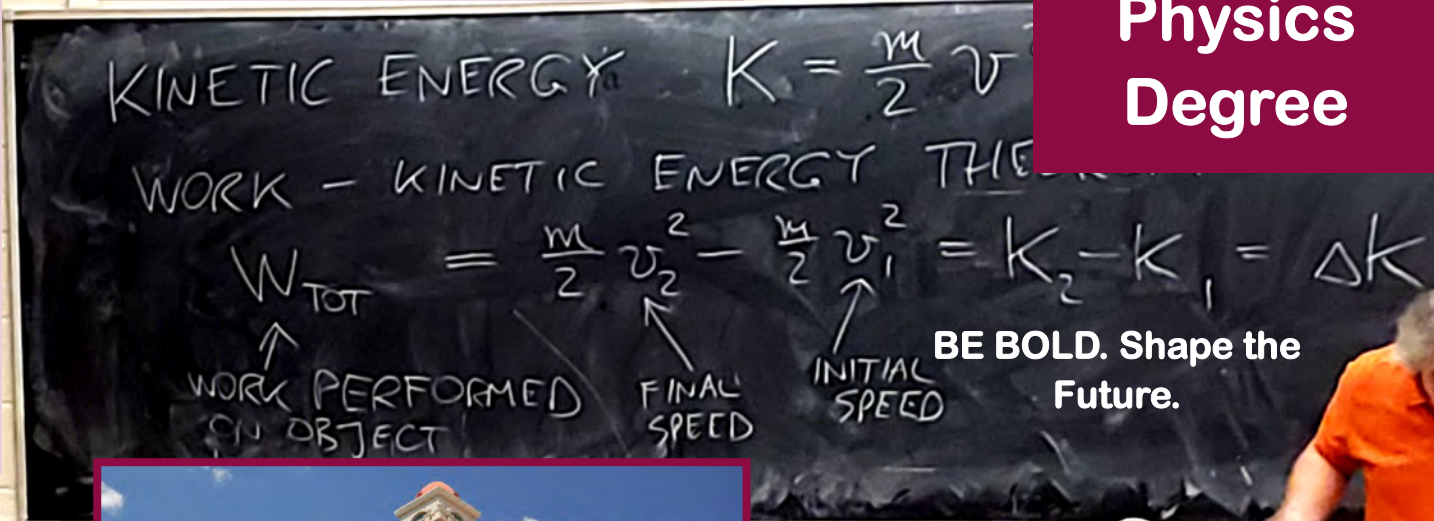 Physics
Degree
KINETIC ENERGY K = m/2 v
WORK - KINETIC ENERGY
W_TOT = m/2 v₂² - m/2 v₁² = K₂ - K₁ = ΔK
↑ ↖ ↗
WORK PERFORMED
ON OBJECT
FINAL
SPEED
INITIAL
SPEED
BE BOLD. Shape the
Future.